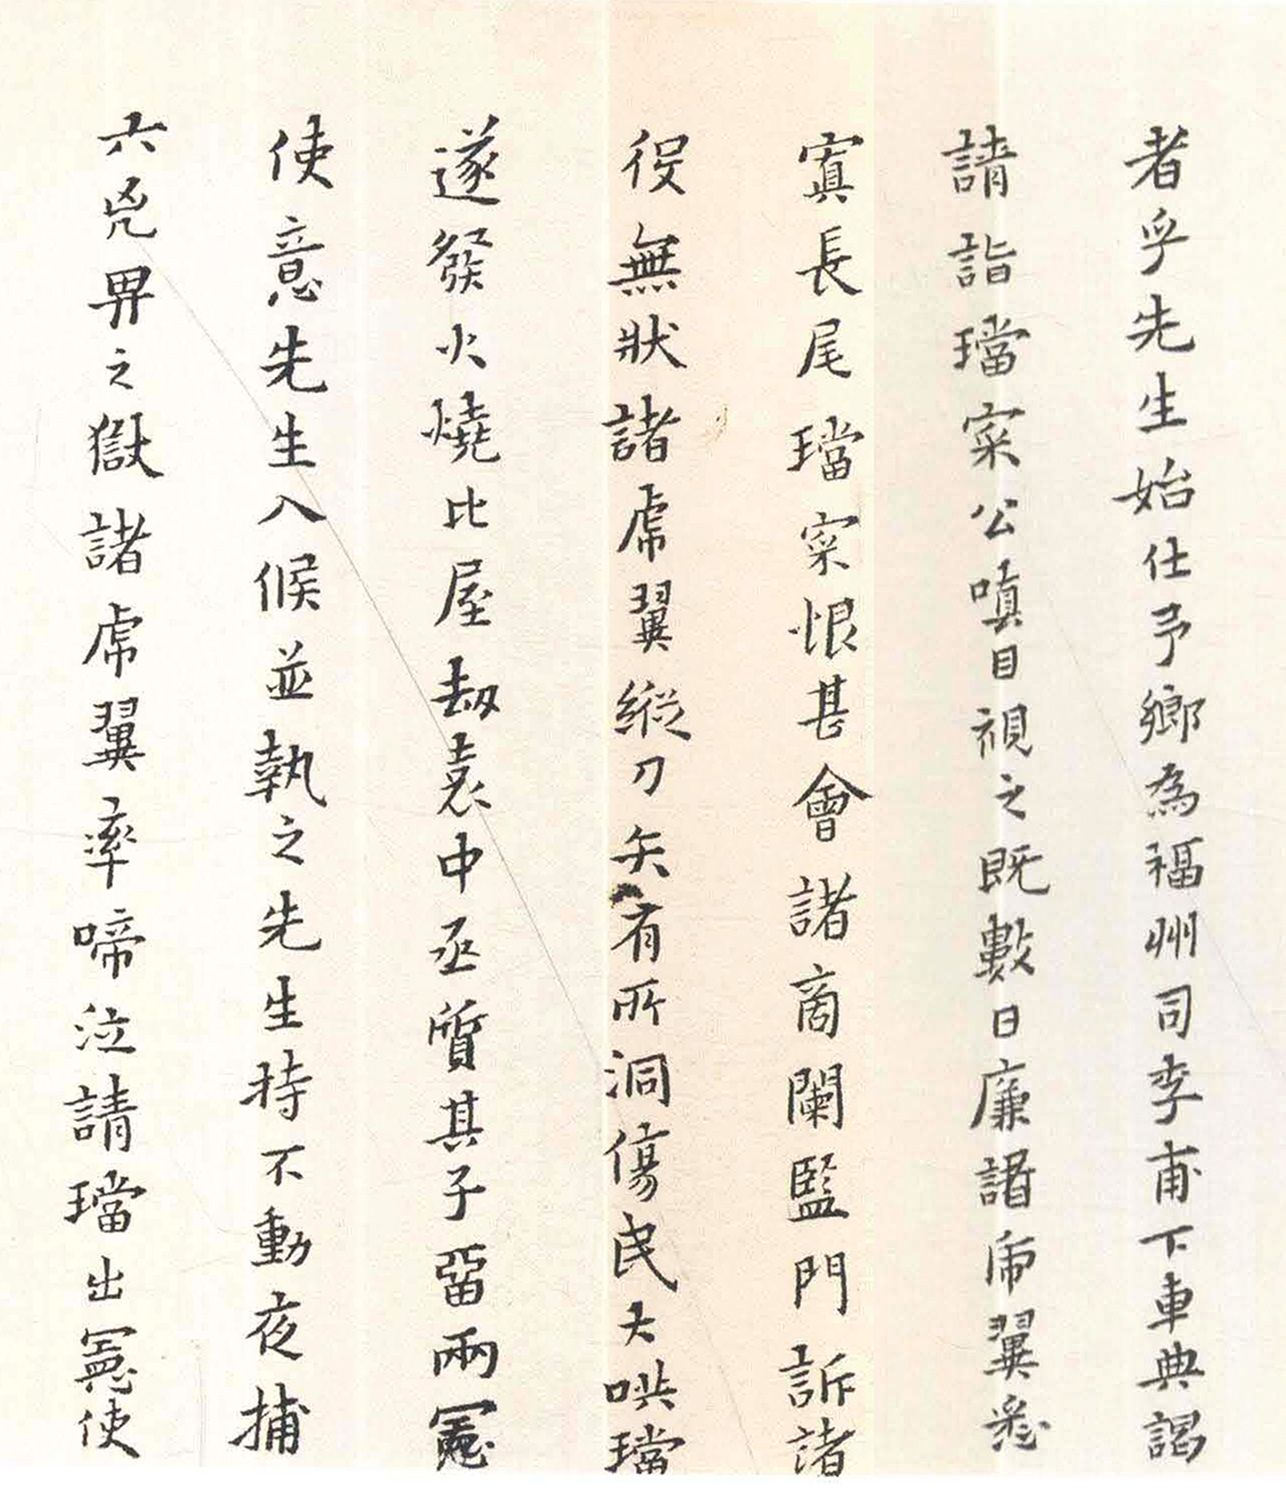 者乎先生始仕予鄉為福州司李甫下車典謁
請詣璫寀公嗔目視之既數日廉諸虎翼悉
寘長尾璫寀恨甚會諸商闌監門訴諸
役無狀諸虎翼縱刀矢有所洞傷民大哄璫
遂發火燒比屋劫袁中丞質其子畱兩憲
使意先生入候並執之先生持不動夜捕
六兇畀之獄諸虎翼率啼泣請璫出憲使